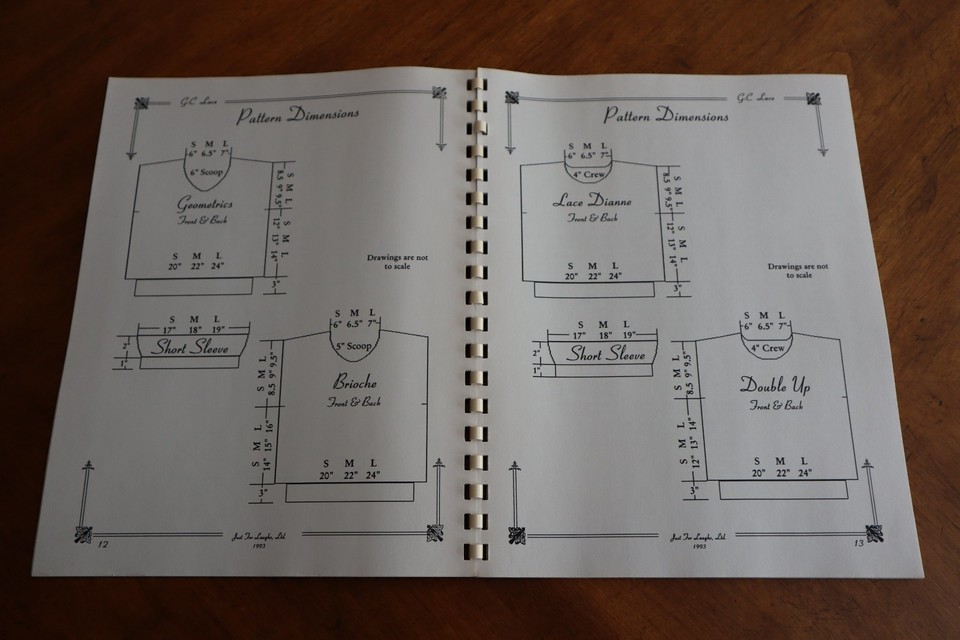 G.C. Lace
Pattern Dimensions
S M L
6" 6.5" 7"
6" Scoop
Geometrics
Front & Back
S M L
8.5 9" 9.5"
S M L
12" 13" 14"
S M L
20" 22" 24"
3"
Drawings are not
to scale
S M L
17" 18" 19"
Short Sleeve
2"
1"
S M L
6" 6.5" 7"
5" Scoop
Brioche
Front & Back
S M L
8.5 9" 9.5"
S M L
14" 15" 16"
S M L
20" 22" 24"
3"
Just For Laughs, Ltd.
1993
12
G.C. Lace
Pattern Dimensions
S M L
6" 6.5" 7"
4" Crew
Lace Dianne
Front & Back
S M L
8.5 9" 9.5"
S M L
12" 13" 14"
S M L
20" 22" 24"
3"
Drawings are not
to scale
S M L
17" 18" 19"
Short Sleeve
2"
1"
S M L
6" 6.5" 7"
4" Crew
Double Up
Front & Back
S M L
8.5 9" 9.5"
S M L
12" 13" 14"
S M L
20" 22" 24"
3"
Just For Laughs, Ltd.
1993
13